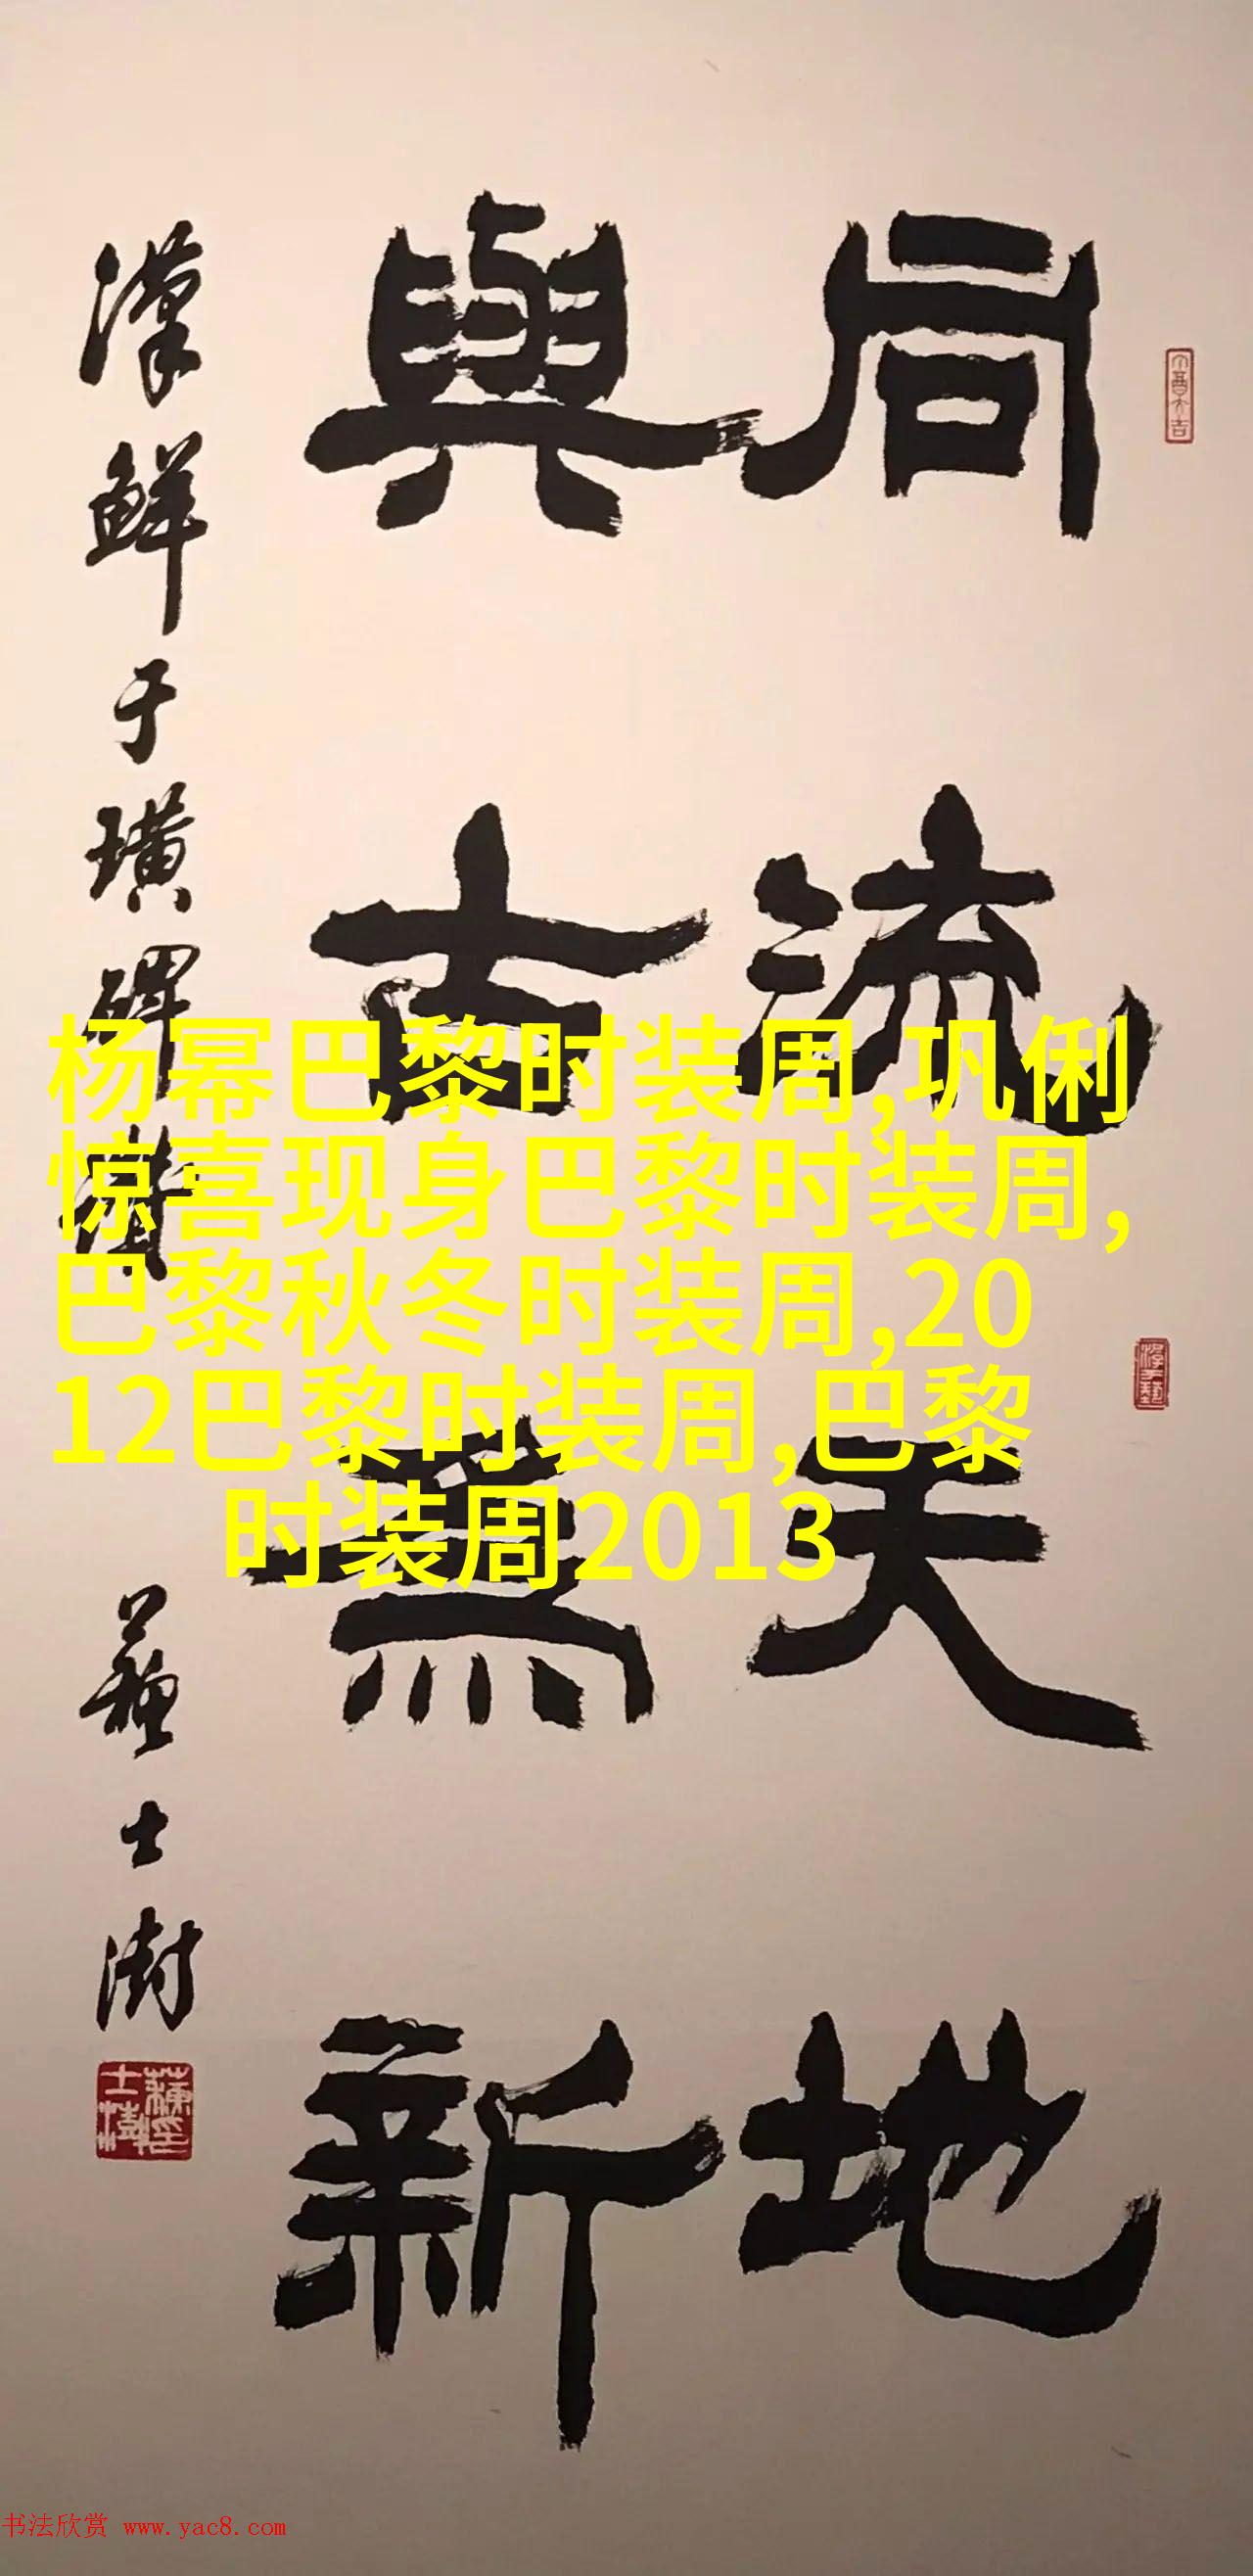 同流天地
與古爲新
漢鮮于璜碑集
蘇士澍
杨幂巴黎时装周,巩俐
惊喜现身巴黎时装周,
巴黎秋冬时装周,20
12巴黎时装周,巴黎
时装周2013
书法欣赏 www.yac8.com